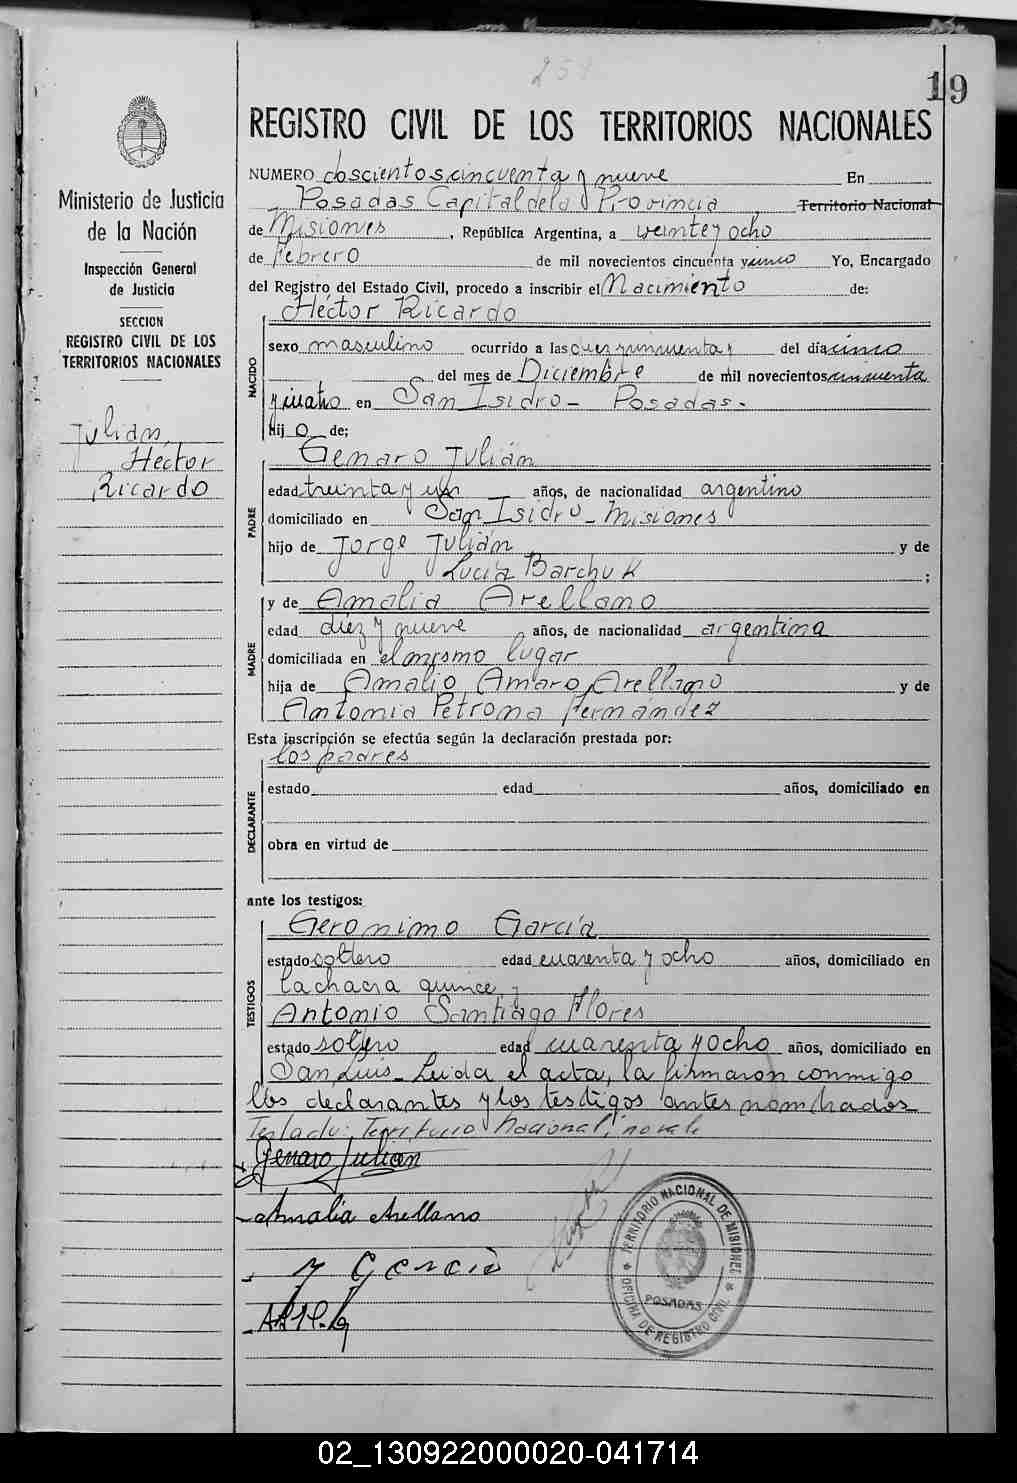 259
19
Ministerio de Justicia
de la Nación
Inspección General
de Justicia
SECCION
REGISTRO CIVIL DE LOS
TERRITORIOS NACIONALES
Julian,
Héctor
Ricardo
REGISTRO CIVIL DE LOS TERRITORIOS NACIONALES
NUMERO doscientos cincuenta y nueve En
Posadas Capital de la Provincia Territorio Nacional
de Misiones, República Argentina, a veinte y ocho
de Febrero de mil novecientos cincuenta y cinco Yo, Encargado
del Registro del Estado Civil, procedo a inscribir el Nacimiento de:
Héctor Ricardo
NACIDO
sexo masculino ocurrido a las diez y cincuenta y del día cinco
del mes de Diciembre de mil novecientos cincuenta
y cuatro en San Isidro - Posadas.-
Hij o de;
Genaro Julián
PADRE
edad treinta y un años, de nacionalidad argentino
domiciliado en San Isidro - Misiones
hijo de Jorge Julián y de
Lucía Barchuk ;
MADRE
y de Amalia Arellano
edad diez y nueve años, de nacionalidad argentina
domiciliada en el mismo lugar
hija de Amalio Amaro Arellano y de
Antonia Petrona Fernández
Esta inscripción se efectúa según la declaración prestada por:
los padres
DECLARANTE
estado edad años, domiciliado en
obra en virtud de
ante los testigos:
Geronimo García
TESTIGOS
estado soltero edad cuarenta y ocho años, domiciliado en
La chacra quince y
Antonio Santiago Flores
estado soltero edad cuarenta y ocho años, domiciliado en
San Luis - Leída el acta, la firmaron conmigo
los declarantes y los testigos antes nombrados
Testado: Territorio Nacional, no vale
Genaro Julian
Amalia Arellano
y Gercia
TERRITORIO NACIONAL DE MISIONES
POSADAS
OFICINA DE REGISTRO CIVIL
02_130922000020-041714